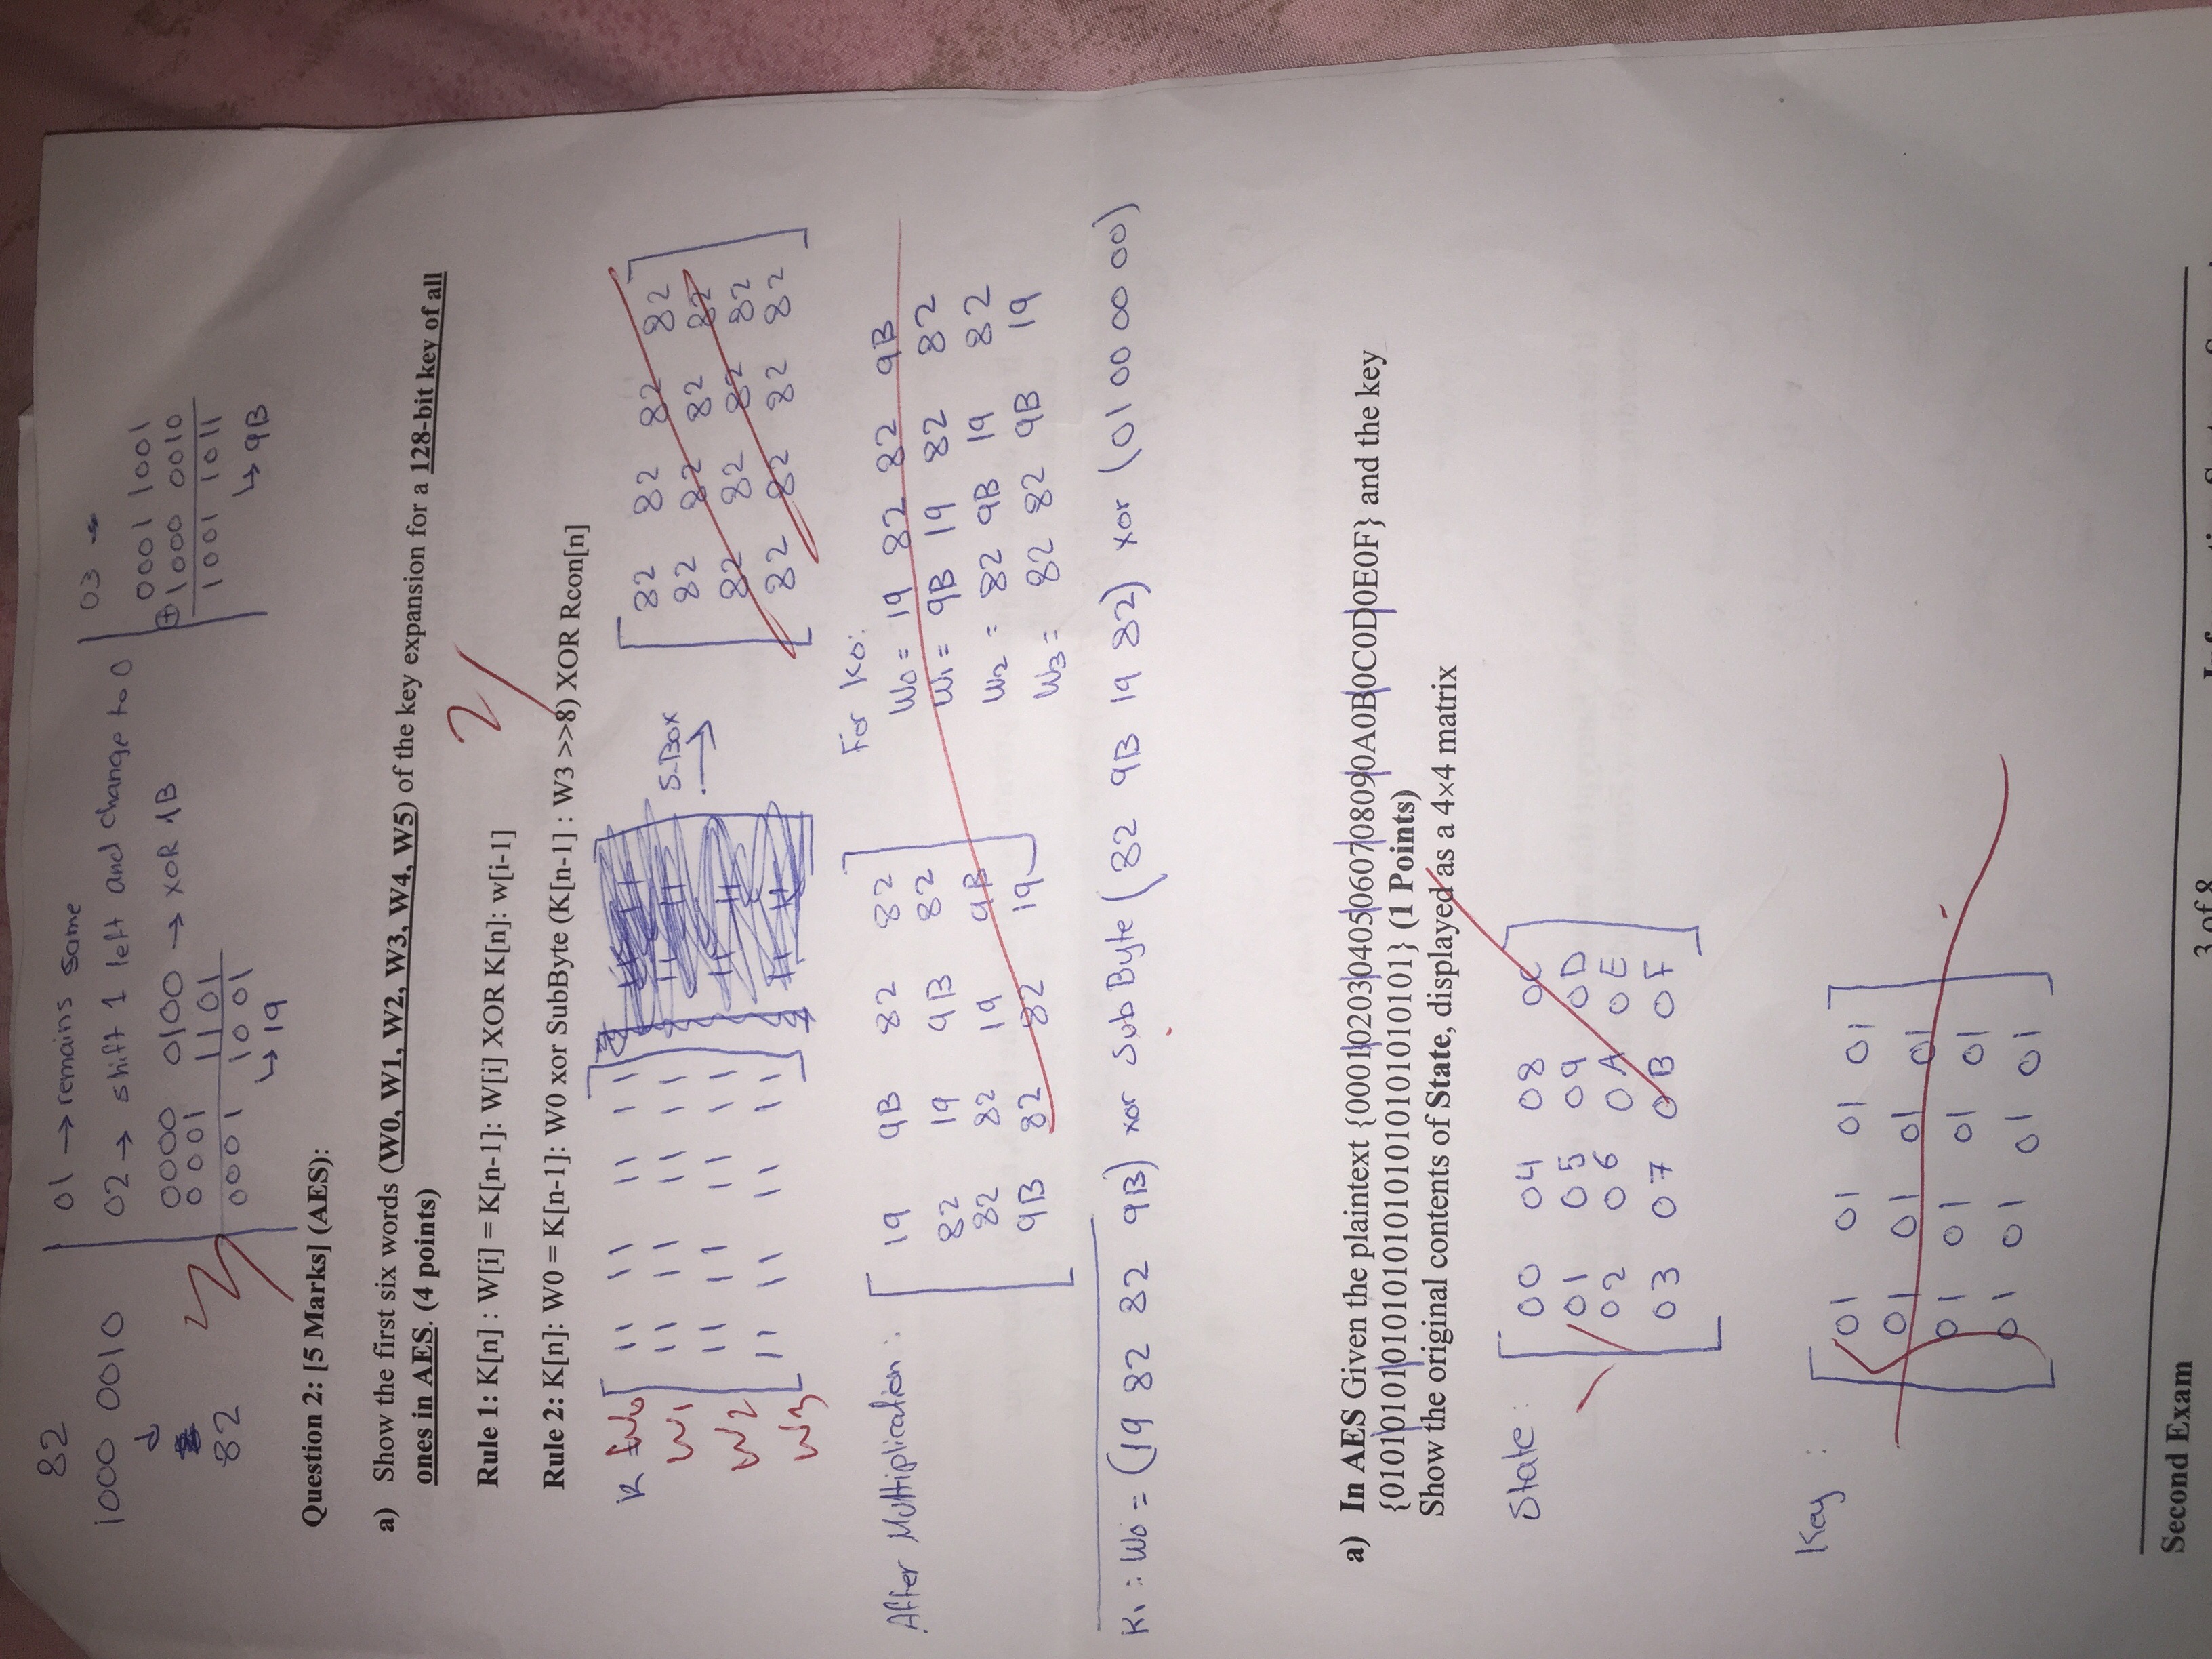 82
1000 0010
82
01 → remains same
02 → shift 1 left and change to 0
0000 0100 → XOR 1B
0001 1101
0001 1001
↳ 19
03
0001 1001
⊕ 1000 0010
1001 1011
↳ 9B
Question 2: [5 Marks] (AES):
a) Show the first six words (W0, W1, W2, W3, W4, W5) of the key expansion for a 128-bit key of all
ones in AES. (4 points)
2/
Rule 1: K[n] : W[i] = K[n-1]: W[i] XOR K[n]: w[i-1]
Rule 2: K[n]: W0 = K[n-1]: W0 xor SubByte (K[n-1] : W3 >>8) XOR Rcon[n]
K W0 11 11 11 11
W1 11 11 11 11
W2 11 11 11 11
W3 11 11 11 11
S-Box
→
82 82 82 82
82 82 82 82
82 82 82 82
82 82 82 82
After Multiplication:
19 9B 82 82
82 19 9B 82
82 82 19 9B
9B 82 82 19
For K0:
W0 = 19 82 82 9B
W1 = 9B 19 82 82
W2 = 82 9B 19 82
W3 = 82 82 9B 19
K1 : W0 = (19 82 82 9B) xor SubByte (82 9B 19 82) xor (01 00 00 00)
a) In AES Given the plaintext {000102030405060708090A0B0C0D0E0F} and the key
{01010101010101010101010101010101} (1 Points)
Show the original contents of State, displayed as a 4×4 matrix
State:
00 04 08 0C
01 05 09 0D
02 06 0A 0E
03 07 0B 0F
Key :
01 01 01 01
01 01 01 01
01 01 01 01
01 01 01 01
Second Exam
3 of 8